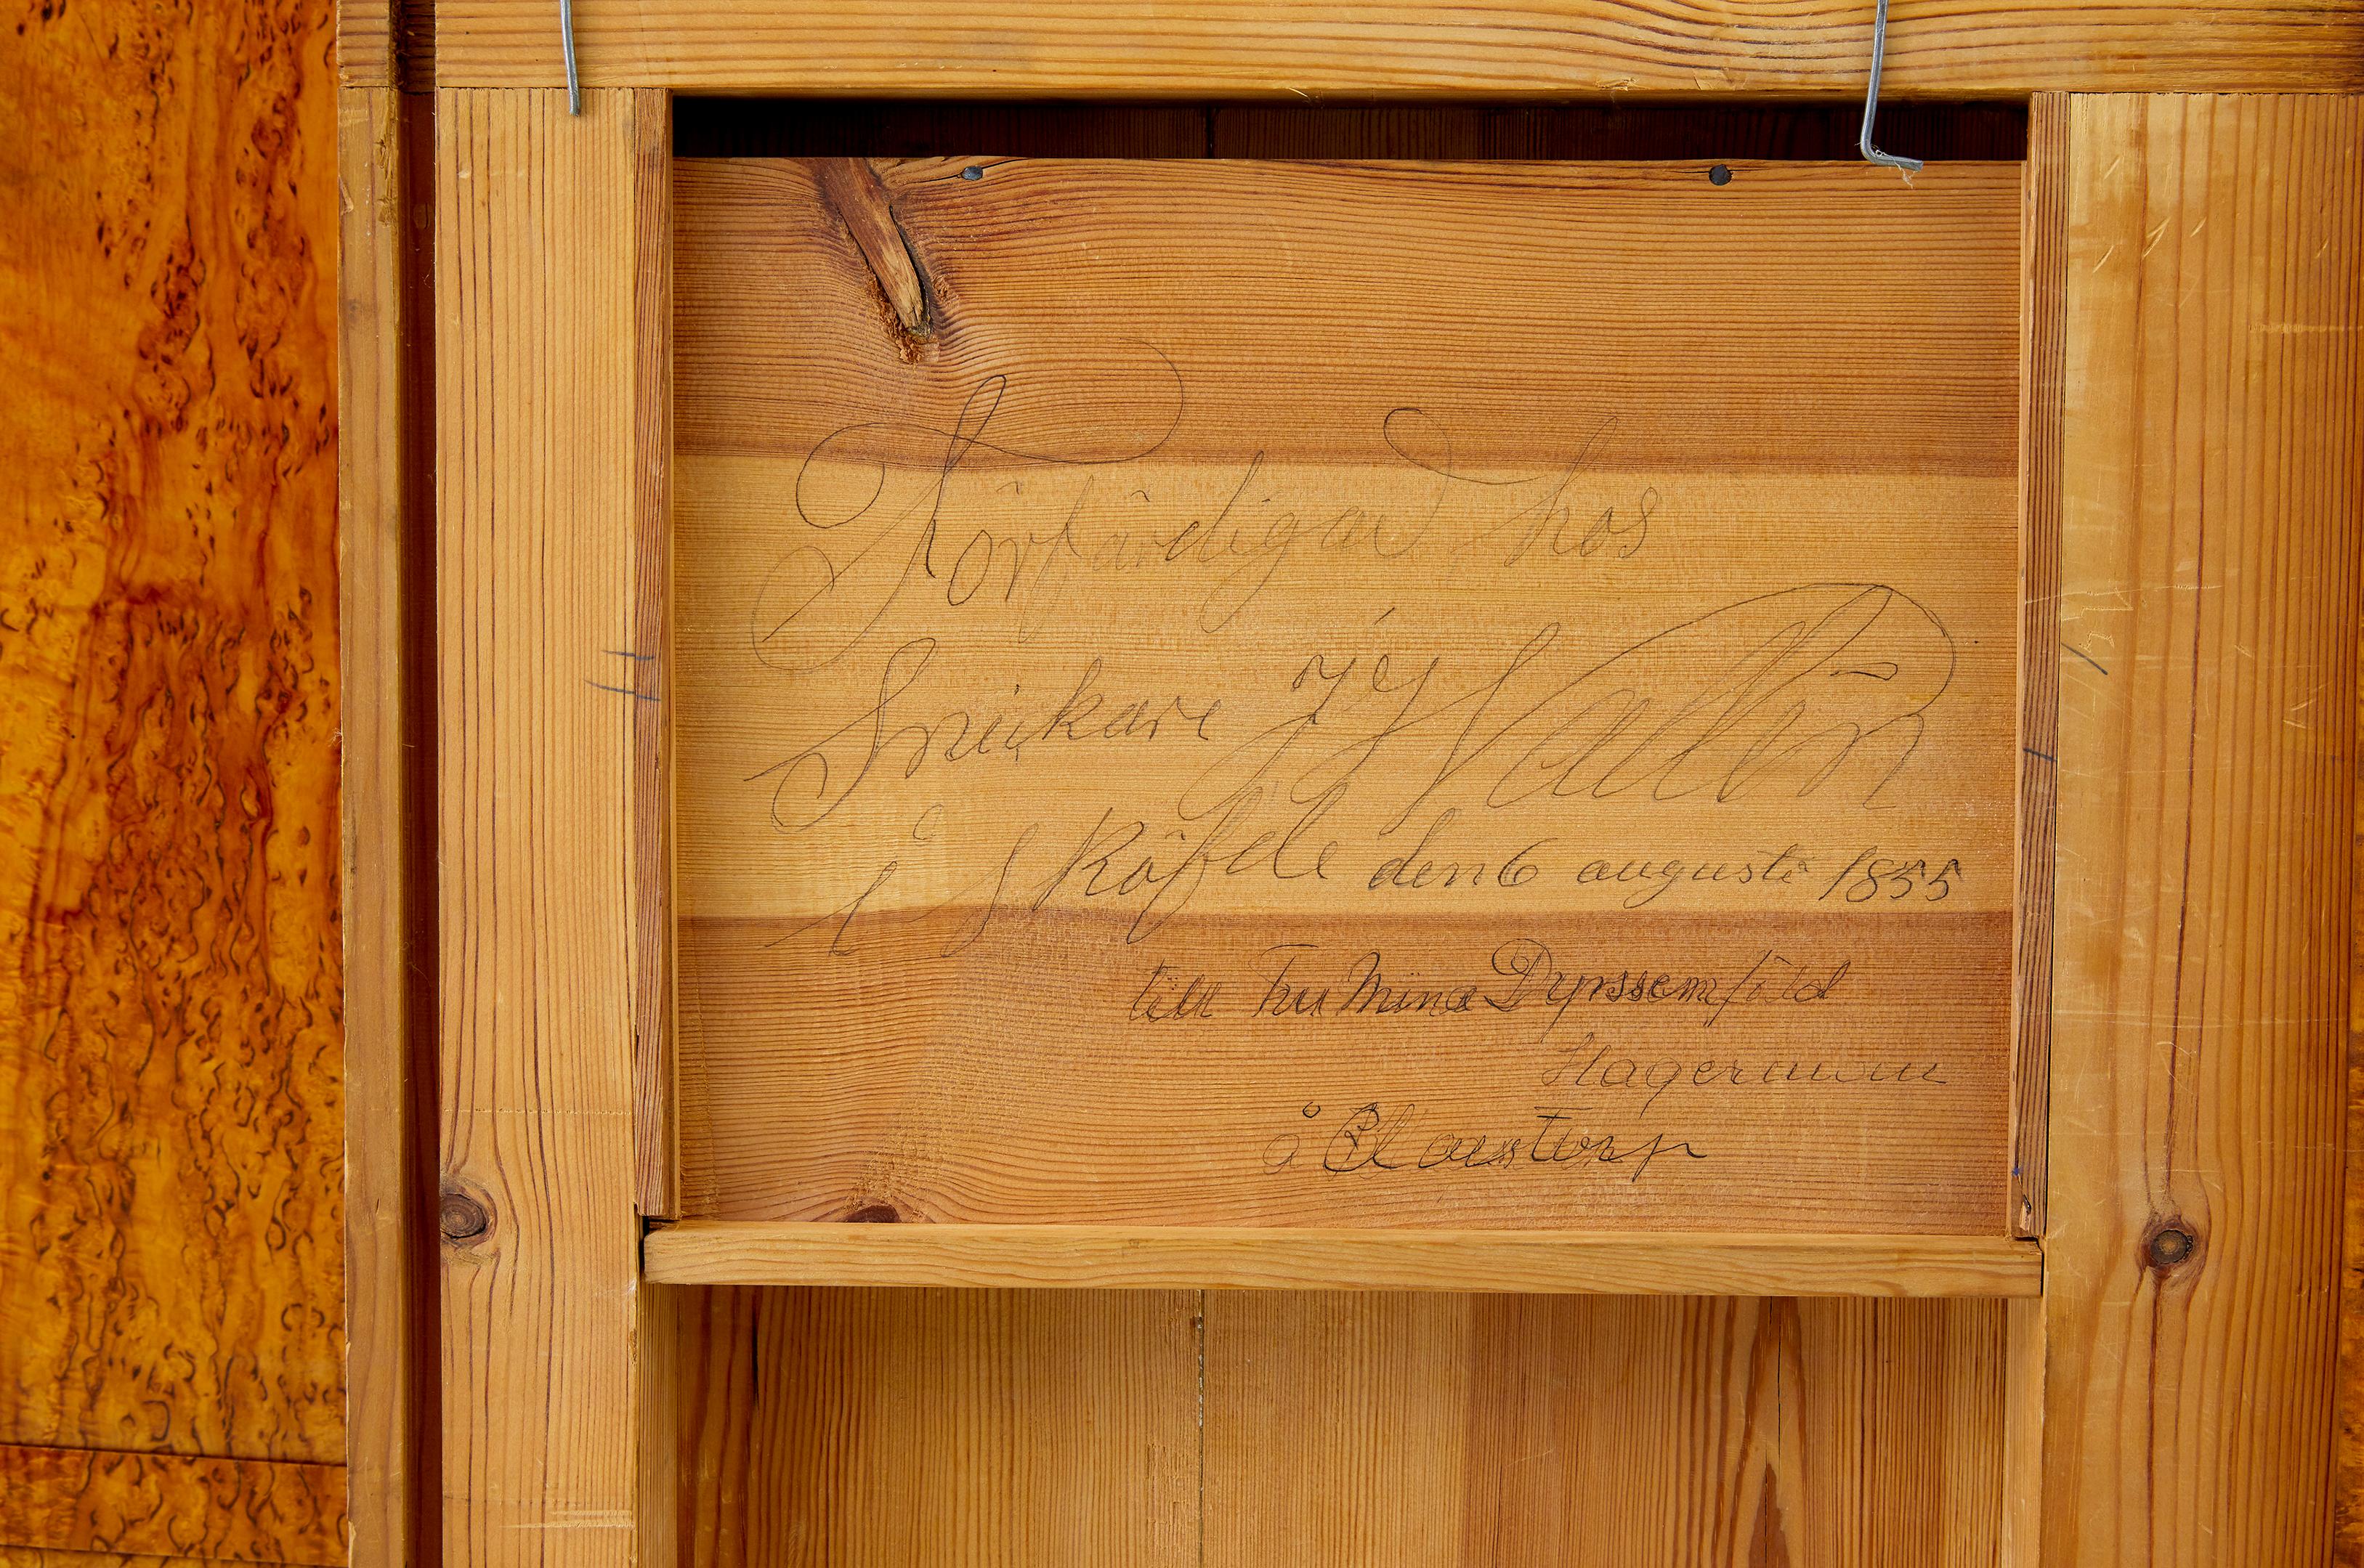 Förfärdigad hos
Snickare J J Wallin
i Sköfde den 6 augusti 1855
till Fru Mina Dyrssen född
Hagerman
å Blaxstorp